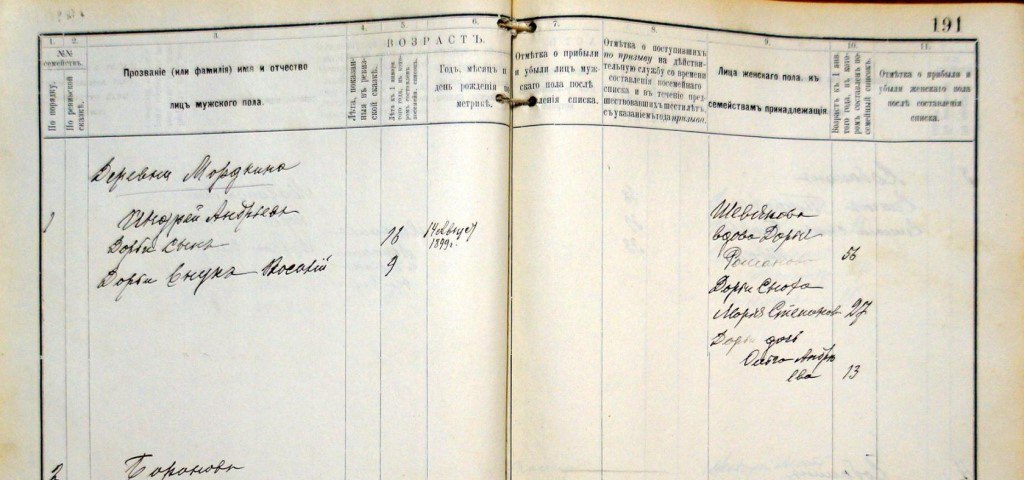 191
1. 2. 3. 5. 6. 7. 8. 9. 10. 11.
№№ семействъ.
По порядку.
По ревизской сказкѣ.
Прозваніе (или фамилія) имя и отчество
лицъ мужского пола.
ВОЗРАСТЪ.
Лѣта, показанныя въ ревизской сказкѣ.
Лѣта къ 1 января того года, въ которомъ составленъ посемейн. списокъ.
Годъ, мѣсяцъ и
день рожденія по
метрикѣ.
Отмѣтка о прибыли
и убыли лицъ муж-
скаго пола послѣ
составленія списка.
Отмѣтка о поступившихъ
по призыву на дѣйстви-
тельную службу со времени
составленія посемейнаго
списка и въ теченіе пред-
шествовавшихъ шести лѣтъ,
съ указаніемъ года призыва.
Лица женскаго пола, къ
семействамъ принадлежащія.
Возрастъ къ 1 янв. того года, въ которомъ составленъ посемейный списокъ.
Отмѣтка о прибыли и
убыли женскаго пола
послѣ составленія
списка.
Деревни Мордкина
1
Андрей Андрѣевъ
Дарьи сынъ
18
14 Август
1899 г.
Дарьи внукъ
9
вдова Дарья
Романова 56
Дарьи сноха
Марья Степанов 27
Дарьи дочь
Ольга Андрѣ
ева 13
2
Барановъ